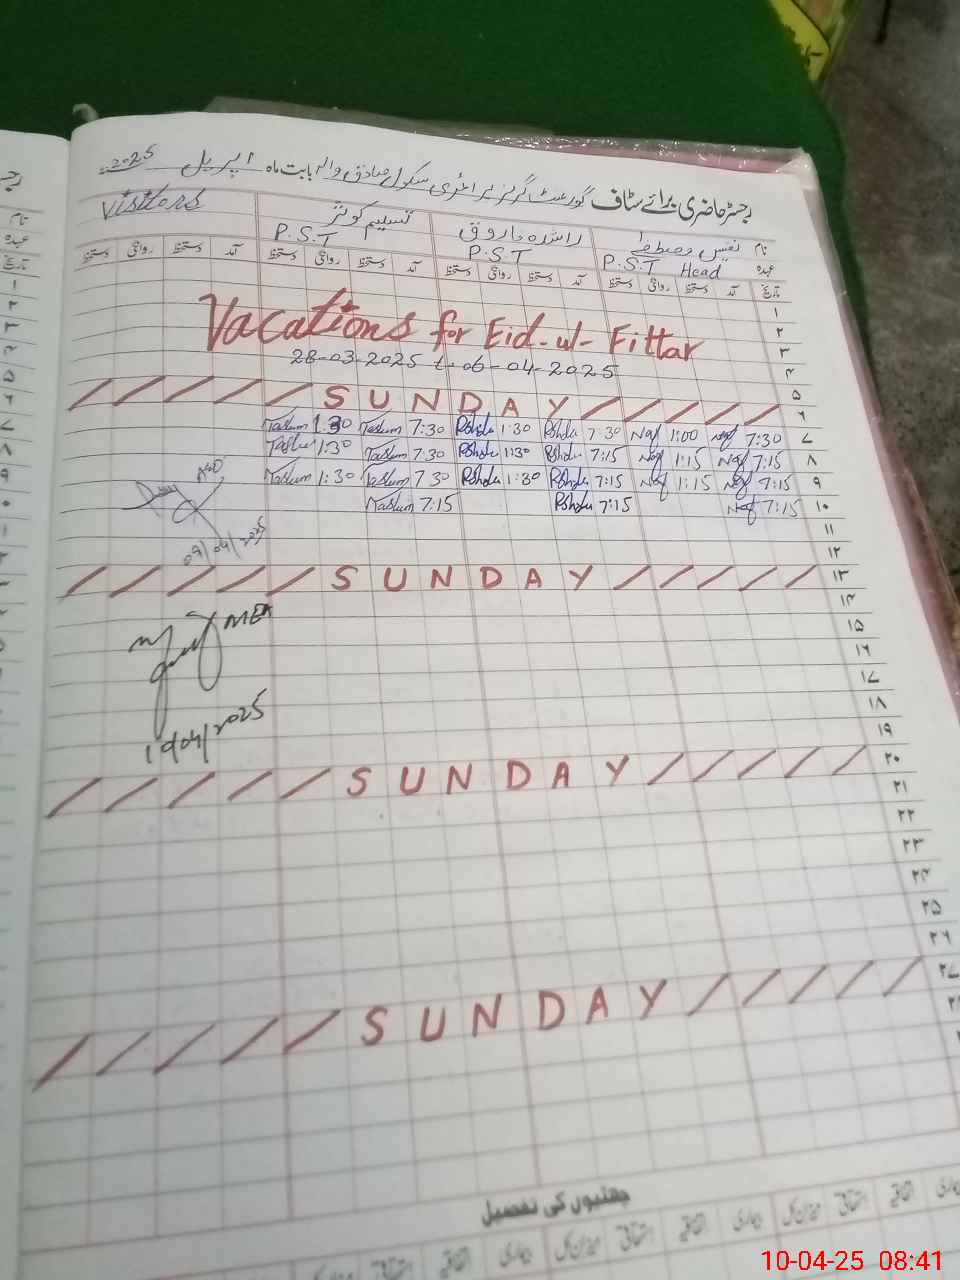 رجسٹر حاضری برائے سٹاف گورنمنٹ گرلز پرائمری سکول صادق والہ بابت ماہ اپریل 2025
نام نفیس مصطفیٰ راشدہ فاروق تسلیم کوثر Visitors
عہدہ P.S.T Head P.S.T P.S.T
تاریخ آمد دستخط روانگی دستخط آمد دستخط روانگی دستخط آمد دستخط روانگی دستخط آمد دستخط روانگی دستخط
۱
۲
Vacations for Eid-ul-Fittar
۳
28-03-2025 to 06-04-2025
۴
۵
SUNDAY ۶
Taslum 1:30 Taslum 7:30 Rshda 1:30 Rshda 7:30 Naf 1:00 Naf 7:30 ۷
Taslum 1:30 Taslum 7:30 Rshda 1:30 Rshda 7:15 Naf 1:15 Naf 7:15 ۸
Taslum 1:30 Taslum 7:30 Rshda 1:30 Rshda 7:15 Naf 1:15 Naf 7:15 ۹
Taslum 7:15 Rshda 7:15 Naf 7:15 ۱۰
AEO
09/04/2025
۱۱
۱۲
SUNDAY ۱۳
۱۴
MEA
۱۵
۱۶
۱۷
۱۸
10/04/2025
۱۹
SUNDAY ۲۰
۲۱
۲۲
۲۳
۲۴
۲۵
۲۶
SUNDAY ۲۷
چھٹیوں کی تفصیل
بیماری اتفاقیہ استحقاقی میزان کل بیماری اتفاقیہ استحقاقی میزان کل بیماری اتفاقیہ
10-04-25 08:41